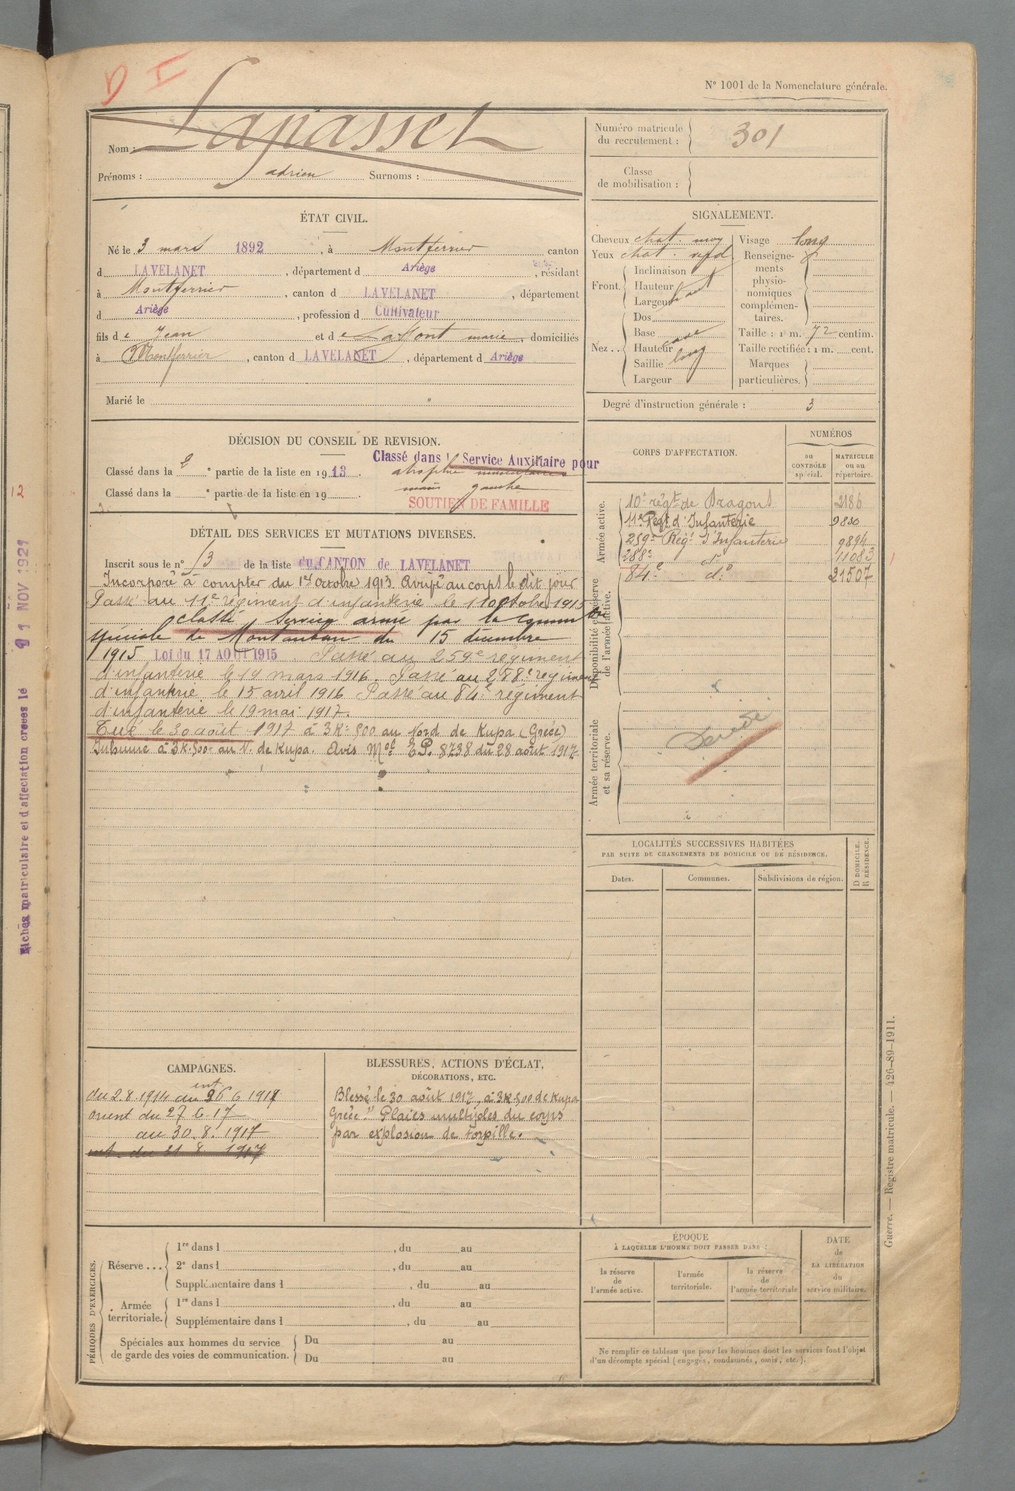 D I
N° 1001 de la Nomenclature générale.
Nom : Lapasset
Prénoms : adrien Surnoms :
Numéro matricule du recrutement : 301
Classe de mobilisation :
ÉTAT CIVIL.
Né le 3 mars 1892, à Montferrier canton
d LAVELANET, département d Ariège, résidant
à Montferrier, canton d LAVELANET, département
d Ariège, profession d Cultivateur
fils de Jean et de Lamont marie, domiciliés
à Montferrier, canton d LAVELANET, département d Ariège
Marié le
SIGNALEMENT.
Cheveux chat. moy
Yeux chat.
Front. Inclinaison
Hauteur haut
Largeur
Nez .. Dos
Base cave
Hauteur
Saillie long
Largeur
Visage long
Renseignements physionomiques complémentaires.
Taille : 1 m. 72 centim.
Taille rectifiée : 1 m. cent.
Marques particulières.
Degré d'instruction générale : 3
DÉCISION DU CONSEIL DE REVISION.
Classé dans la 2e partie de la liste en 1913.
Classé dans la e partie de la liste en 19
Classé dans l Service Auxiliaire pour
atrophie musculaire
main gauche
SOUTIEN DE FAMILLE
DÉTAIL DES SERVICES ET MUTATIONS DIVERSES.
Inscrit sous le n° 13 de la liste du CANTON de LAVELANET
Incorporé à compter du 1er octobre 1913. Arrivé au corps le dit jour
Passé au 11e régiment d'infanterie le 11 octobre 1915
classé service armé par la comm
spéciale de Montauban du 15 décembre
1915 Loi du 17 AOUT 1915. Passé au 259e régiment
d'infanterie le 19 mars 1916. Passé au 288e régiment
d'infanterie le 15 avril 1916 Passé au 84e régiment
d'infanterie le 19 mai 1917.
Tué le 30 août 1917 à 3K.800 au Nord de Kupa (Grèce)
Inhumé à 3K.800 au N. de Kupa. Avis Mel P. 8738 du 28 août 1917
CORPS D'AFFECTATION.
NUMÉROS
au CONTRÔLE spécial.
MATRICULE ou au répertoire.
Armée active.
10e régt de Dragons 2186
11e Régt d'Infanterie 9880
259e Rég. d'Infanterie 9894
288e do 11083
84e do 21507
Disponibilité et réserve de l'armée active.
Armée territoriale et sa réserve.
Décédé
LOCALITÉS SUCCESSIVES HABITÉES
PAR SUITE DE CHANGEMENTS DE DOMICILE OU DE RÉSIDENCE.
Dates. Communes. Subdivisions de région. D DOMICILE. R RÉSIDENCE.
CAMPAGNES.
int
du 2.8.1914 au 26 6 1917
orient du 27 6 17
au 30.8.1917
BLESSURES, ACTIONS D'ÉCLAT,
DÉCORATIONS, ETC.
Blessé le 30 août 1917, à 3K.800 de Kupa
Grèce "Plaies multiples du corps
par explosion de torpille.
PÉRIODES D'EXERCICES.
Réserve ... 1re dans l , du au
2e dans l , du au
Supplémentaire dans l , du au
Armée territoriale. 1re dans l , du au
Supplémentaire dans l , du au
Spéciales aux hommes du service de garde des voies de communication. Du au
Du au
ÉPOQUE
À LAQUELLE L'HOMME DOIT PASSER DANS :
la réserve de l'armée active.
l'armée territoriale.
la réserve de l'armée territoriale
DATE de LA LIBÉRATION du service militaire.
Ne remplir ce tableau que pour les hommes dont les services font l'objet
d'un décompte spécial (engagés, condamnés, omis, etc.).
Guerre. — Registre matricule. — 426-89-1911.
12
Fiches matriculaire et d'affectation créées le 21 NOV 1921